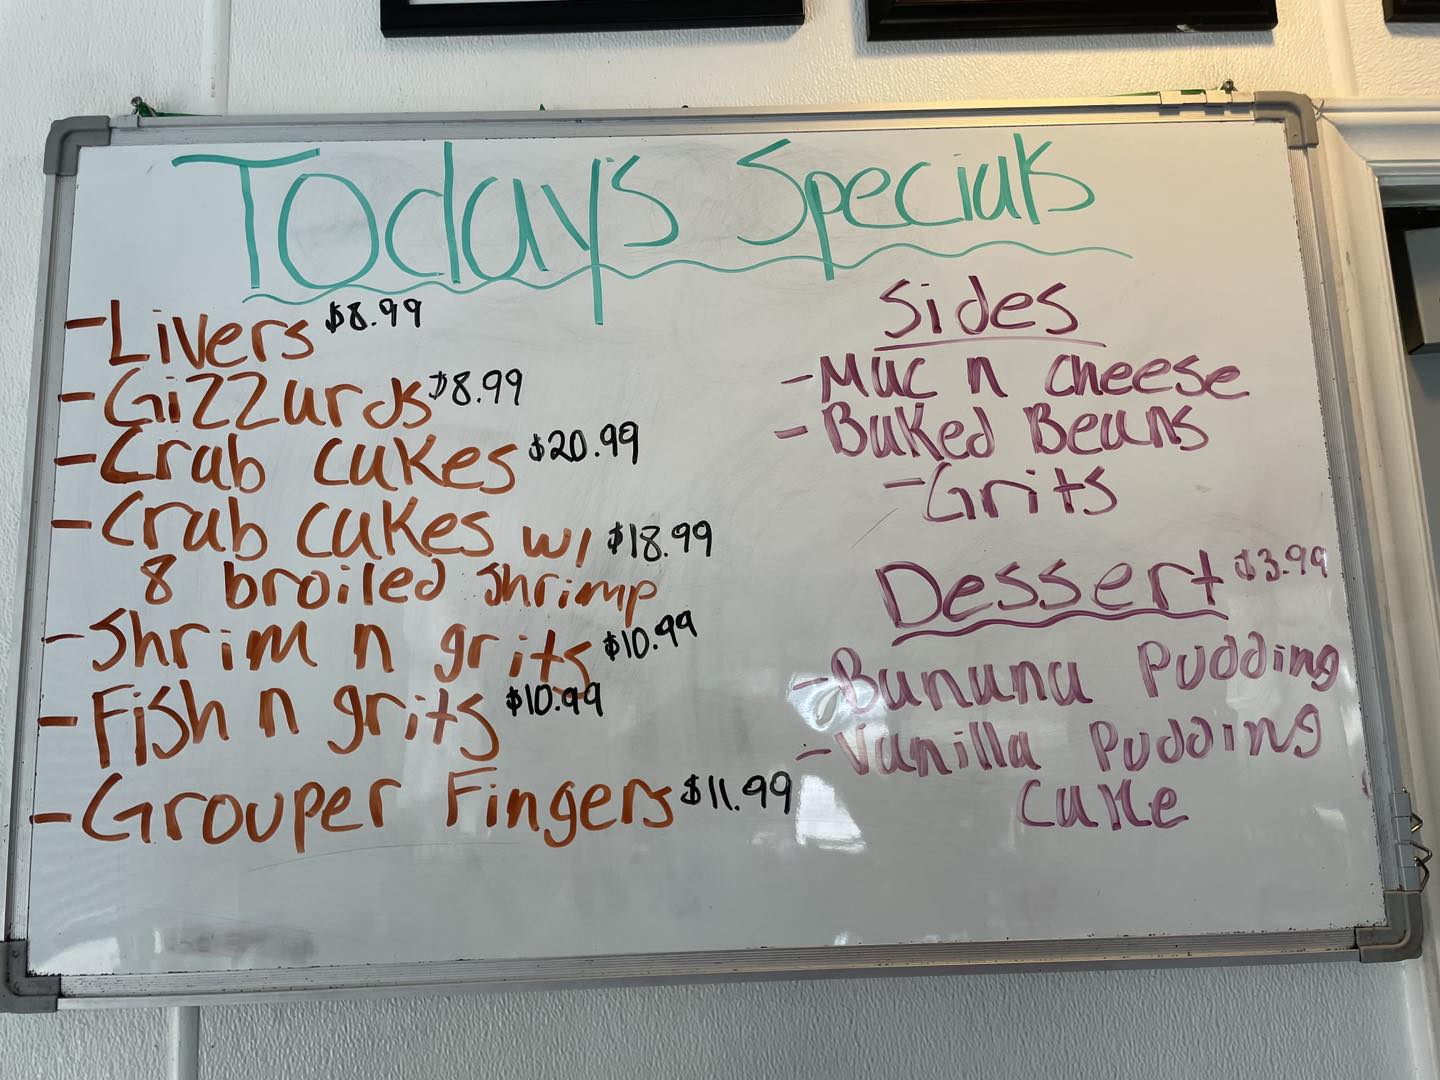 Today's Specials
- Livers $8.99
- Gizzards $8.99
- Crab cakes $20.99
- Crab cakes w/ $18.99
8 broiled shrimp
- Shrim n grits $10.99
- Fish n grits $10.99
- Grouper Fingers $11.99
Sides
- Mac n cheese
- Baked Beans
- Grits
Dessert $3.99
- Banana Pudding
- Vanilla Pudding
Cake